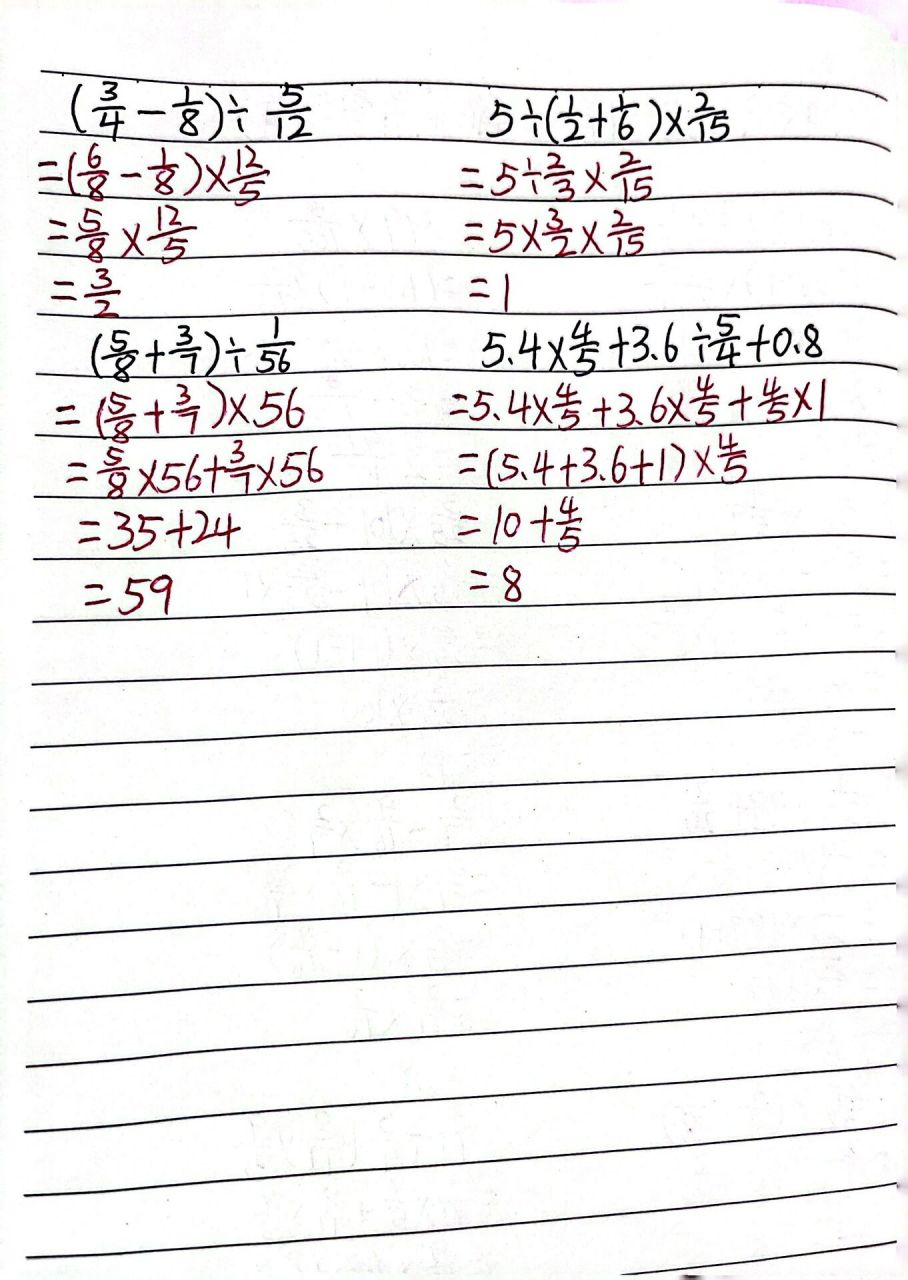 (3/4 − 1/8) ÷ 5/12
=(6/8 − 1/8) × 12/5
= 5/8 × 12/5
= 3/2
5 ÷ (1/2 + 1/6) × 2/15
= 5 ÷ 2/3 × 2/15
= 5 × 3/2 × 2/15
= 1
(5/8 + 3/7) ÷ 1/56
= (5/8 + 3/7) × 56
= 5/8 × 56 + 3/7 × 56
= 35 + 24
= 59
5.4 × 4/5 + 3.6 ÷ 5/4 + 0.8
= 5.4 × 4/5 + 3.6 × 4/5 + 4/5 × 1
= (5.4 + 3.6 + 1) × 4/5
= 10 + 4/5
= 8